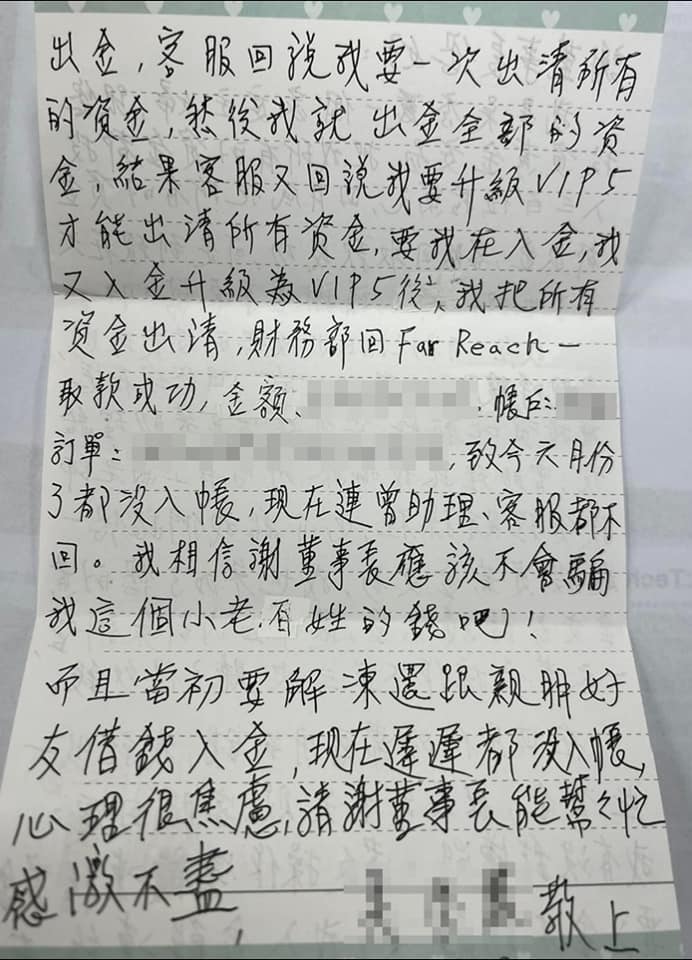 出金,客服回說我要一次出清所有
的資金,然後我就出金全部的資
金,結果客服又回說我要升級VIP5
才能出清所有資金,要我在入金,我
又入金升級為VIP5後,我把所有
資金出清,財務部回Far Reach一
取款成功,金額、 帳戶:
訂單: ,致今六月份
了都沒入帳,現在連曾助理、客服都不
回。我相信謝董事長應該不會騙
我這個小老百姓的錢吧!
而且當初要解凍還跟親朋好
友借錢入金,現在遲遲都沒入帳,
心理很焦慮,請謝董事長能幫幫忙
感激不盡, 敬上